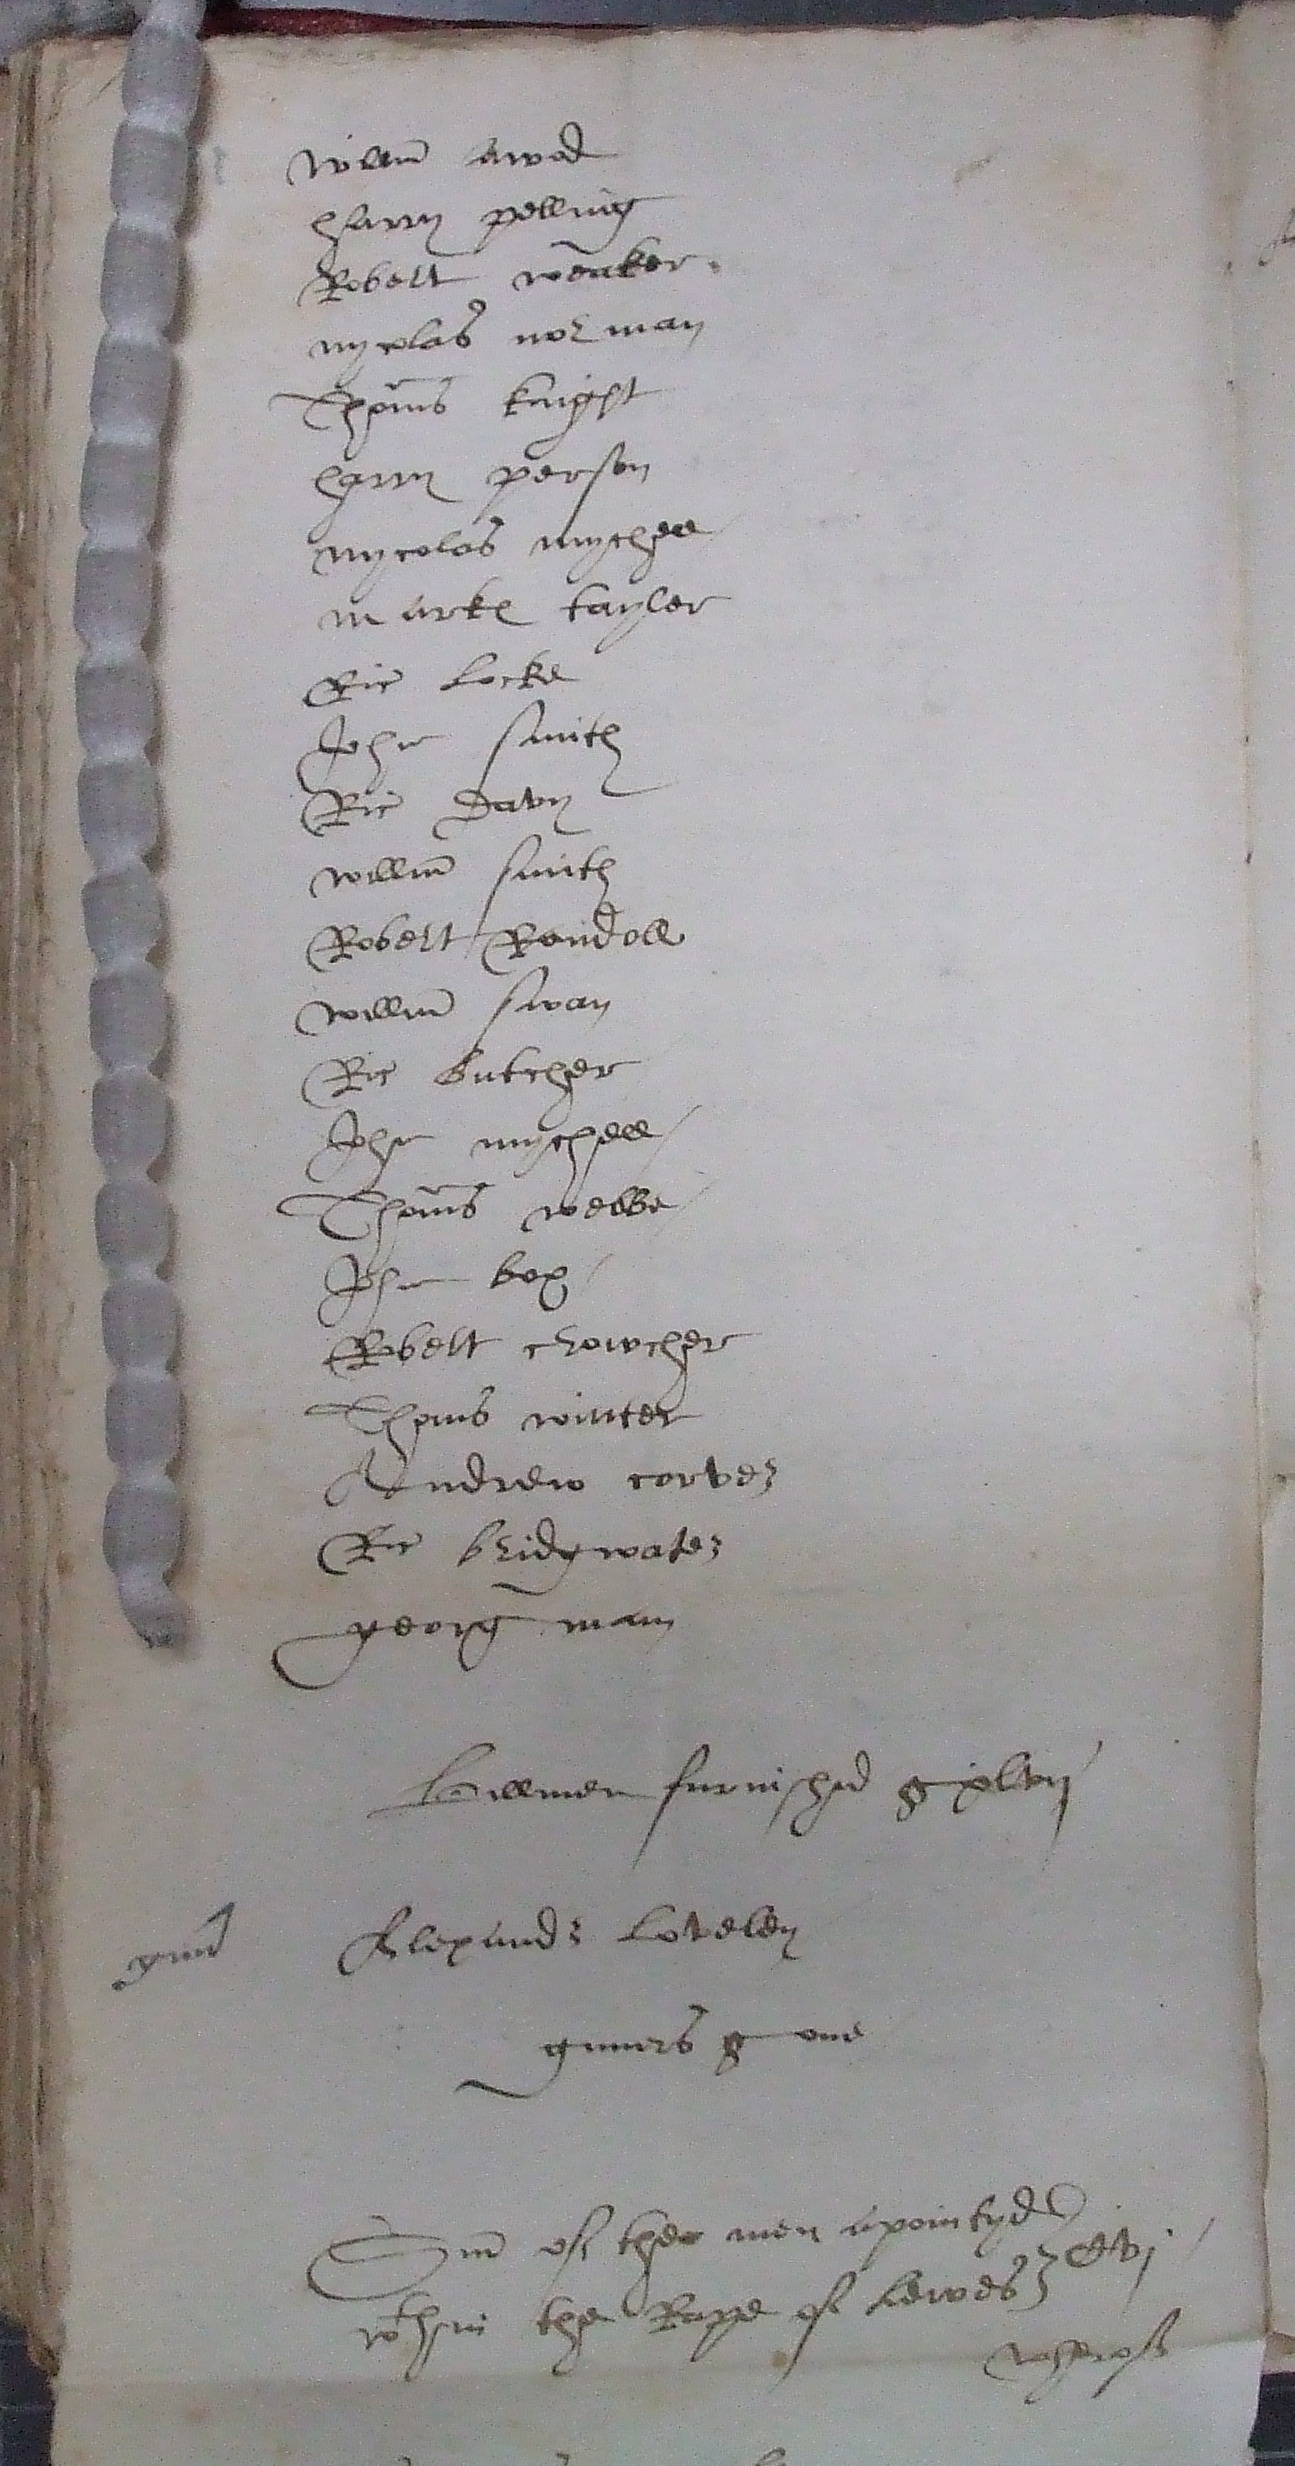 willm awod
harry pelling
Robert weaker
nycolas norman
Thoms knight
harry person
nycolas mychell
marke tayler
Ric Locke
John smith
Ric Davy
willm smith
Robert Rendoll
willm swan
Ric butcher
John mychell
Thoms webbe
John box
Robert crowcher
Thoms winter
Andrew corver
Ric bridgwater
georg man
billmen furnished xlvij
gunr Alexandr Loveley
gunners one
Sm of thes men apointyd
wthin the Rape of Lewes cvj
wherof